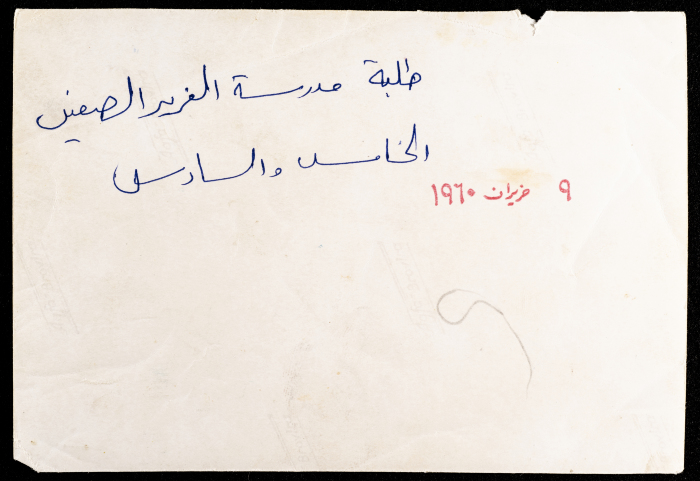 طلبة مدرسة الفرير الصفين
الخامس والسادس
٩ حزيران ١٩٦٠